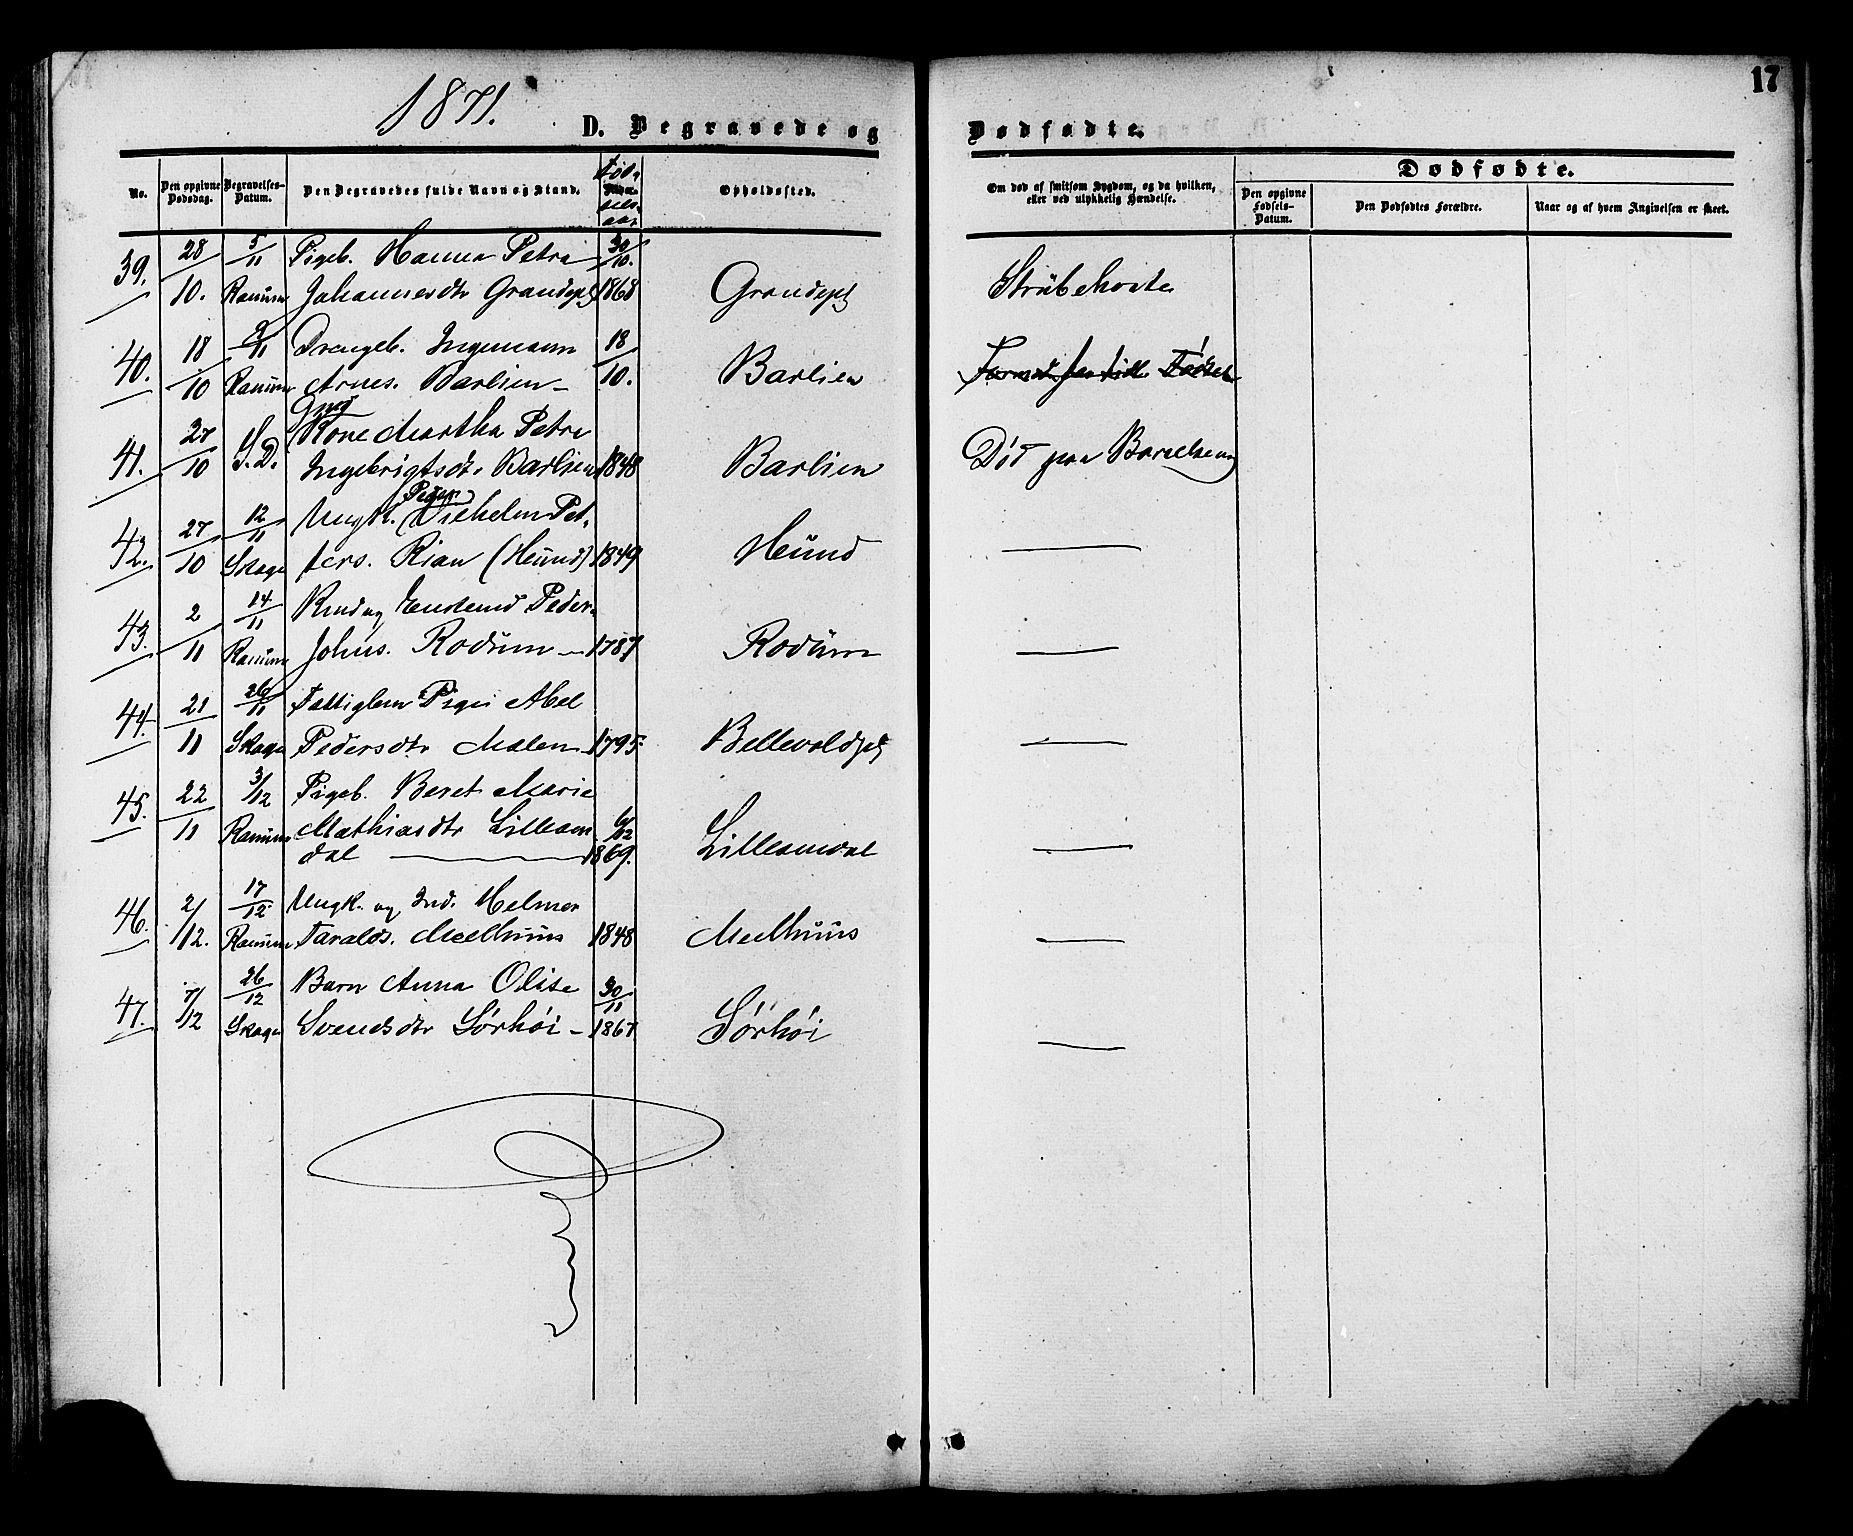 17
1871.
D. Begravede og Dødfødte.
No.
Den opgivne Dødsdag.
Begravelses-Datum.
Den Begravedes fulde Navn og Stand.
Fød-
sels-
aar
Opholdssted.
Om død af smitsom Sygdom, og da hvilken, eller ved ulykkelig Hændelse.
Dødfødte.
Den opgivne Fødsels-Datum.
Den Dødfødtes Forældre.
Naar og af hvem Angivelsen er skeet.
39. 28/10. 5/11 Pigeb. Hanna Petra 30/10.
Ranum Johannesdtr Grandepl 1868 Grandepl Strubehoste
40. 18/10 9/11 Drengeb. Ingemann 18/10.
Ranum Arnes. Barlien Barlien
41. 27/10 S. D. Gmd
Kone Martha Petra
Ingebrigtsdtr Barlien 1848 Barlien Død paa Barselseng
42. 27/10 12/11 Ungk. Vilhelm Pet-
Skage ters. Rian (Heund) 1849 Heund —
43. 2/11 14/11 Peder
Ranum Johns. Rodum 1787 Rodum —
44. 21/11 26/11 Fattiglem Pige Abel
Skage Pedersdtr Moen 1795. Bellevoldpl —
45. 22/11 3/12 Pigeb. Beret Marie
Ranum Mathiasdtr Lilleam 6/12
dal — 1869. Lilleamdal —
46. 2/12. 17/12. Ungk. og Ind. Helmer
Ranum Taralds. Mælhuus 1848 Mælhuus —
47. 7/12 26/12 Barn Anna Olise 30/11
Skage Svendsdtr Sørhøi 1867 Sørhøi —